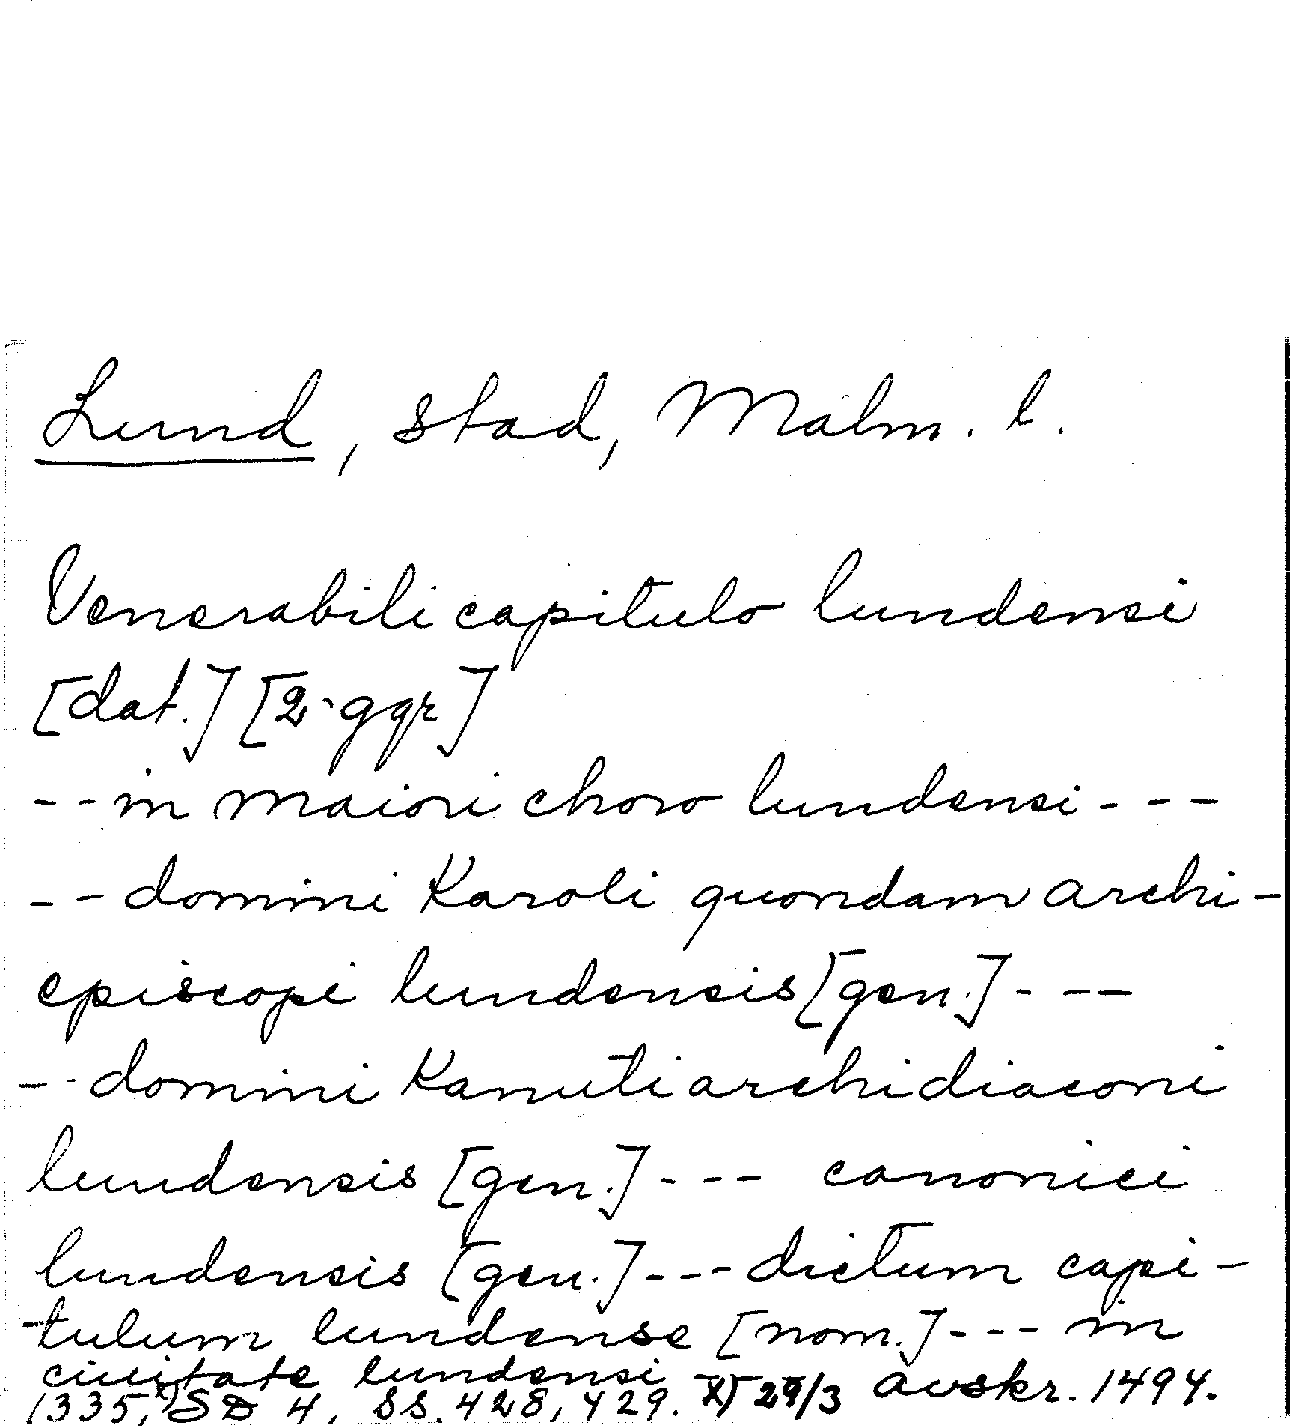 Lund, stad, Malm. l.
Venerabili capitulo lundensi
[dat.] [2 ggr]
-- in maiori choro lundensi ---
-- domini Karoli quondam archi-
episcopi lundensis [gen.] ---
-- domini Kanuti archidiaconi
lundensis [gen.] --- canonici
lundensis [gen.] --- dictum capi-
-tulum lundense [nom.] --- in
ciuitate lundensi
1335, x) SD 4, ss. 428, 429. x) 29/3 avskr. 1494.